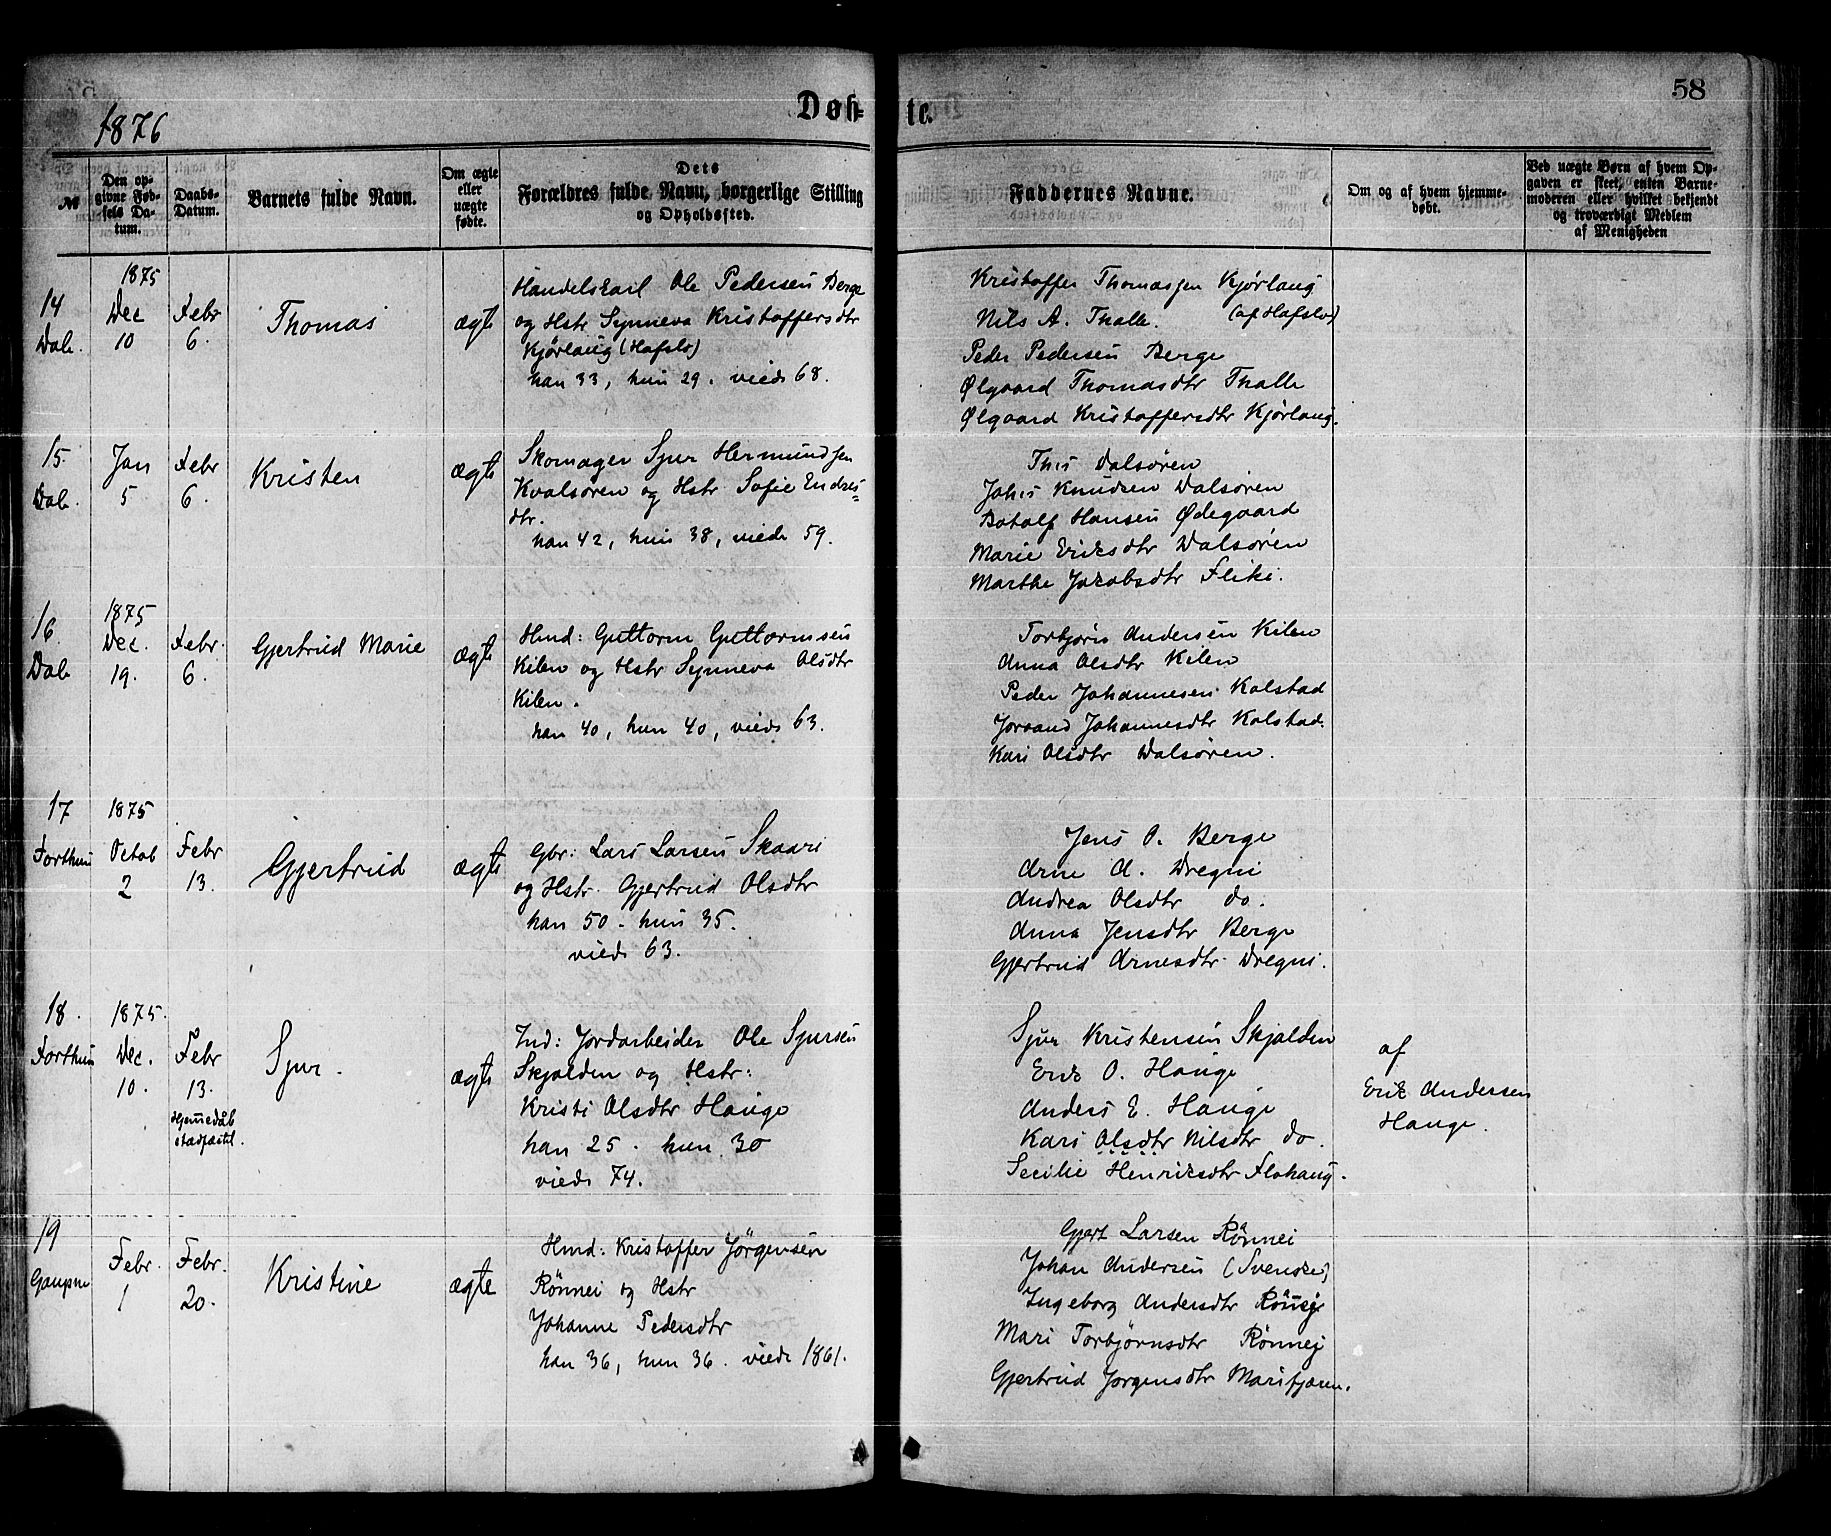 58
1876
Døb-
te.
№
Den opgivne Fødsels Datum.
Daabs-Datum.
Barnets fulde Navn.
Om ægte eller uægte fødte.
Dets Forældres fulde Navn, borgerlige Stilling og Opholdssted.
Faddernes Navne.
Om og af hvem hjemmedøbt.
Ved uægte Børn af hvem Opgaven er skeet, enten Barnemoderen eller hvilket bekjendt og troværdigt Medlem af Menigheden
14
Dale
1875
Dec
10
Febr
6.
Thomas
ægte
Handelskarl Ole Pedersen Berge
og Hstr Synneva Kristoffersdtr
Kjørlaug (Hafslo)
han 33, hun 29. viede 68.
Kristoffer Thomassen Kjørlaug
(af Hafslo)
Nils A. Thalle.
Peder Pedersen Berge
Ølgaard Thomasdtr Thalle
Ølgaard Kristoffersdtr Kjørlaug.
15.
Dale
Jan
5
Febr
6.
Kristen
ægte
Skomager Sjur Hermundsen
Kvalsøren og Hstr Sofie Endres=
dtr.
han 42, hun 38, viede 59.
This Dalsøren
Johs Knudsen Dalsøren
Botolf Hansen Ødegaard
Marie Eriksdtr Dalsøren
Marthe Jakobsdtr Flike.
16.
Dale
1875
Dec.
19.
Febr.
6.
Gjertrud Marie
ægte
Hmd: Guttorm Guttormsen
Kilen og Hstr Synneva Olsdtr
Kilen.
han 40, hun 40, viede 63.
Torbjørn Andersen Kilen
Anna Olsdtr Kilen
Peder Johannesen Kolstad
Joraand Johannesdtr Kolstad.
Kari Olsdtr Dalsøren.
17
Forthun
1875
Octob
2
Febr
13.
Gjertrud
ægte
Gbr: Lars Larsen Skaari
og Hstr. Gjertrud Olsdtr
han 50. hun 35.
viede 63.
Jens O. Berge
Arne A. Dregni
Andrea Olsdtr do.
Anna Jensdtr Berge
Gjertrud Arnesdtr Dregni.
18.
Forthun
1875.
Dec.
10.
Febr
13.
Hjemmedåb
stadfæstet.
Sjur.
ægte
Ind: Jordarbeider Ole Sjursen
Skjolden og Hstr:
Kristi Olsdtr Hauge
han 25. hun 30
viede 74.
Sjur Kristensen Skjolden
Erik O. Hauge
Anders E. Hauge
Kari Olsdtr Nilsdtr do.
Secilie Henriksdtr Flohaug.
af
Erik Andersen
Hauge.
19
Gaupne
Febr.
1
Febr.
20.
Kristine
ægte
Hmd: Kristoffer Jørgensen
Rønnei og Hstr
Johanne Pedersdtr
han 36, hun 36. viede 1861.
Gjert Larsen Rønnei
Johan Andersen (Svenske)
Ingeborg Andersdtr Rønnei
Mari Torbjørnsdtr Rønnej
Gjertrud Jørgensdtr Marifjøren.